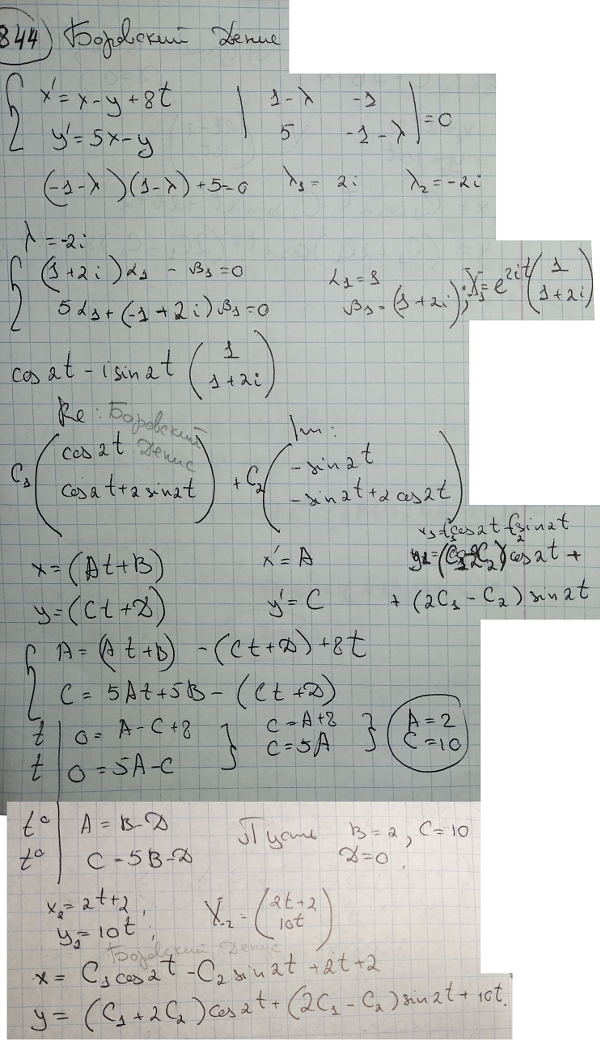 844 Боровский Денис
{ x' = x - y + 8t | 1-λ -1 |
{ y' = 5x - y | 5 -1-λ | = 0
(-1-λ)(1-λ) + 5 = 0 λ₁ = 2i λ₂ = -2i
λ = -2i
{ (1+2i)α₁ - β₁ = 0 α₁ = 1
{ 5α₁ + (-1+2i)β₁ = 0 β₁ = (1+2i); X̄₁ = e^{2it} (1 / 1+2i)
cos 2t - i sin 2t (1 / 1+2i)
Re: Боровский Im:
Денис
C₁ (cos 2t / cos 2t + 2 sin 2t) + C₂ (-sin 2t / -sin 2t + 2 cos 2t)
x₁ = C₁ cos 2t - C₂ sin 2t
x = (At+B) x' = A y₁ = (C₁+2C₂) cos 2t +
y = (Ct+D) y' = C + (2C₁ - C₂) sin 2t
{ A = (At+B) - (Ct+D) + 8t
{ C = 5At + 5B - (Ct+D)
t | 0 = A - C + 8 } C = A+8 } A = 2
t | 0 = 5A - C } C = 5A } C = 10
t⁰ | A = B - D Пусть B = 2, C = 10
t⁰ | C - 5B - D D = 0.
x₂ = 2t+2, X̄₂ = (2t+2 / 10t)
y₂ = 10t;
Боровский Денис
x = C₁ cos 2t - C₂ sin 2t + 2t + 2
y = (C₁ + 2C₂) cos 2t + (2C₁ - C₂) sin 2t + 10t.